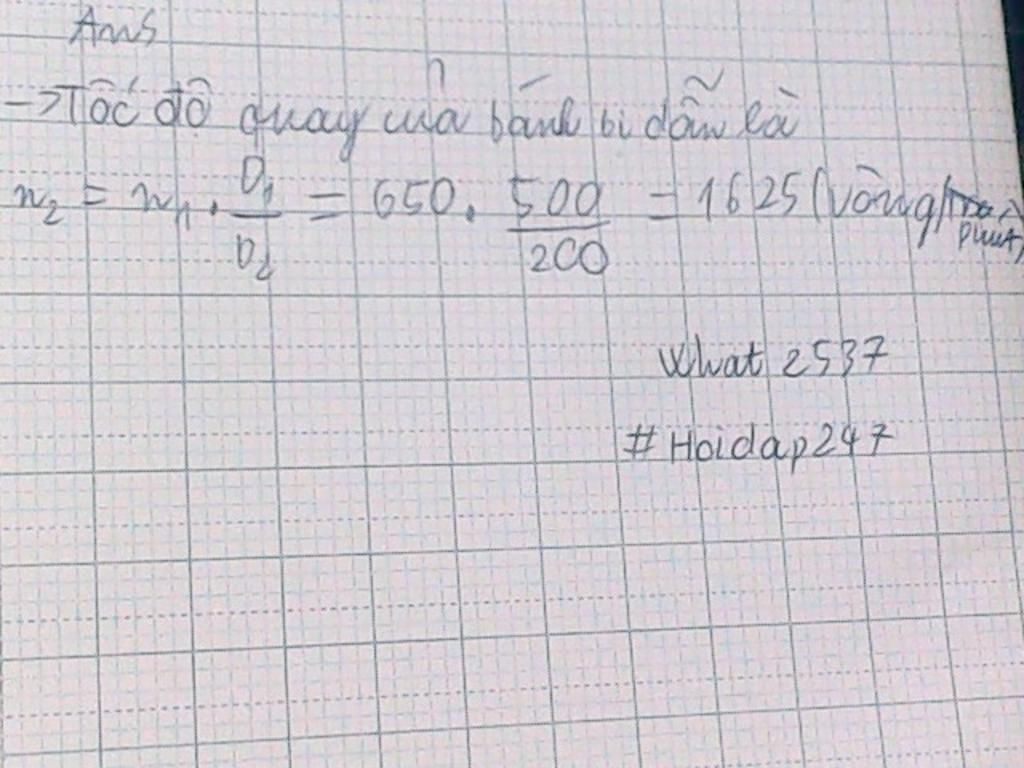 Ans
→ Tốc độ quay của bánh bị dẫn là
n₂ = n₁ . D₁/D₂ = 650 . 500/200 = 1625 (vòng/phút)
What 2537
# Hoidap247